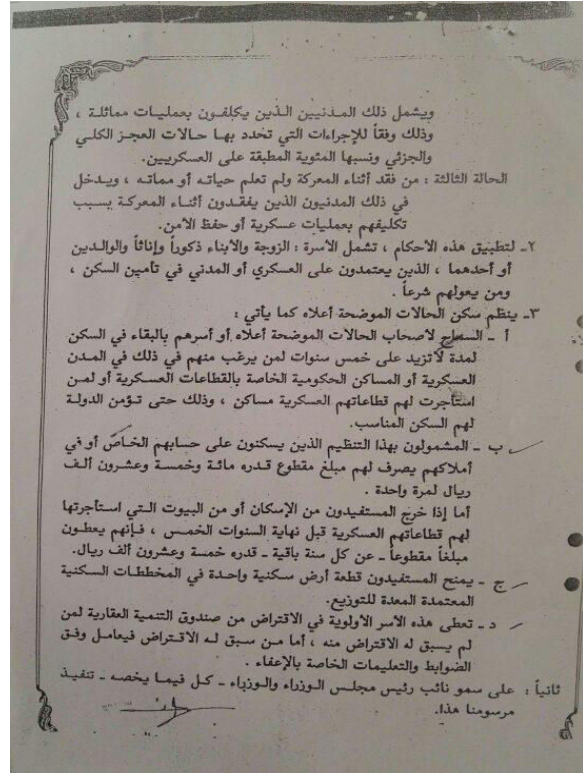 ويشمل ذلك المدنيين الذين يكلفون بعمليات مماثلة ،
وذلك وفقاً للإجراءات التي تحدد بها حالات العجز الكلي
والجزئي ونسبها المئوية المطبقة على العسكريين.
الحالة الثالثة : من فقد أثناء المعركة ولم تعلم حياته أو مماته ، ويدخل
في ذلك المدنيون الذين يفقدون أثناء المعركة بسبب
تكليفهم بعمليات عسكرية أو حفظ الأمن.
٢ـ لتطبيق هذه الأحكام ، تشمل الأسرة : الزوجة والأبناء ذكوراً وإناثاً والوالدين
أو أحدهما ، الذين يعتمدون على العسكري أو المدني في تأمين السكن ،
ومن يعولهم شرعاً .
٣ـ ينظم سكن الحالات الموضحة أعلاه كما يأتي :
أ ـ السماح لأصحاب الحالات الموضحة أعلاه أو أسرهم بالبقاء في السكن
لمدة لاتزيد على خمس سنوات لمن يرغب منهم في ذلك في المدن
العسكرية أو المساكن الحكومية الخاصة بالقطاعات العسكرية أو لمن
استأجرت لهم قطاعاتهم العسكرية مساكن ، وذلك حتى تؤمن الدولة
لهم السكن المناسب.
ب ـ المشمولون بهذا التنظيم الذين يسكنون على حسابهم الخاص أو في
أملاكهم يصرف لهم مبلغ مقطوع قدره مائة وخمسة وعشرون ألف
ريال لمرة واحدة .
أما إذا خرج المستفيدون من الإسكان أو من البيوت التي استأجرتها
لهم قطاعاتهم العسكرية قبل نهاية السنوات الخمس ، فإنهم يعطون
مبلغاً مقطوعاً ـ عن كل سنة باقية ـ قدره خمسة وعشرون ألف ريال.
ج ـ يمنح المستفيدون قطعة أرض سكنية واحدة في المخططات السكنية
المعتمدة المعدة للتوزيع.
د ـ تعطى هذه الأسر الأولوية في الاقتراض من صندوق التنمية العقارية لمن
لم يسبق له الاقتراض منه ، أما من سبق له الاقتراض فيعامل وفق
الضوابط والتعليمات الخاصة بالإعفاء .
ثانياً : على سمو نائب رئيس مجلس الوزراء والوزراء ـ كل فيما يخصه ـ تنفيذ
مرسومنا هذا.